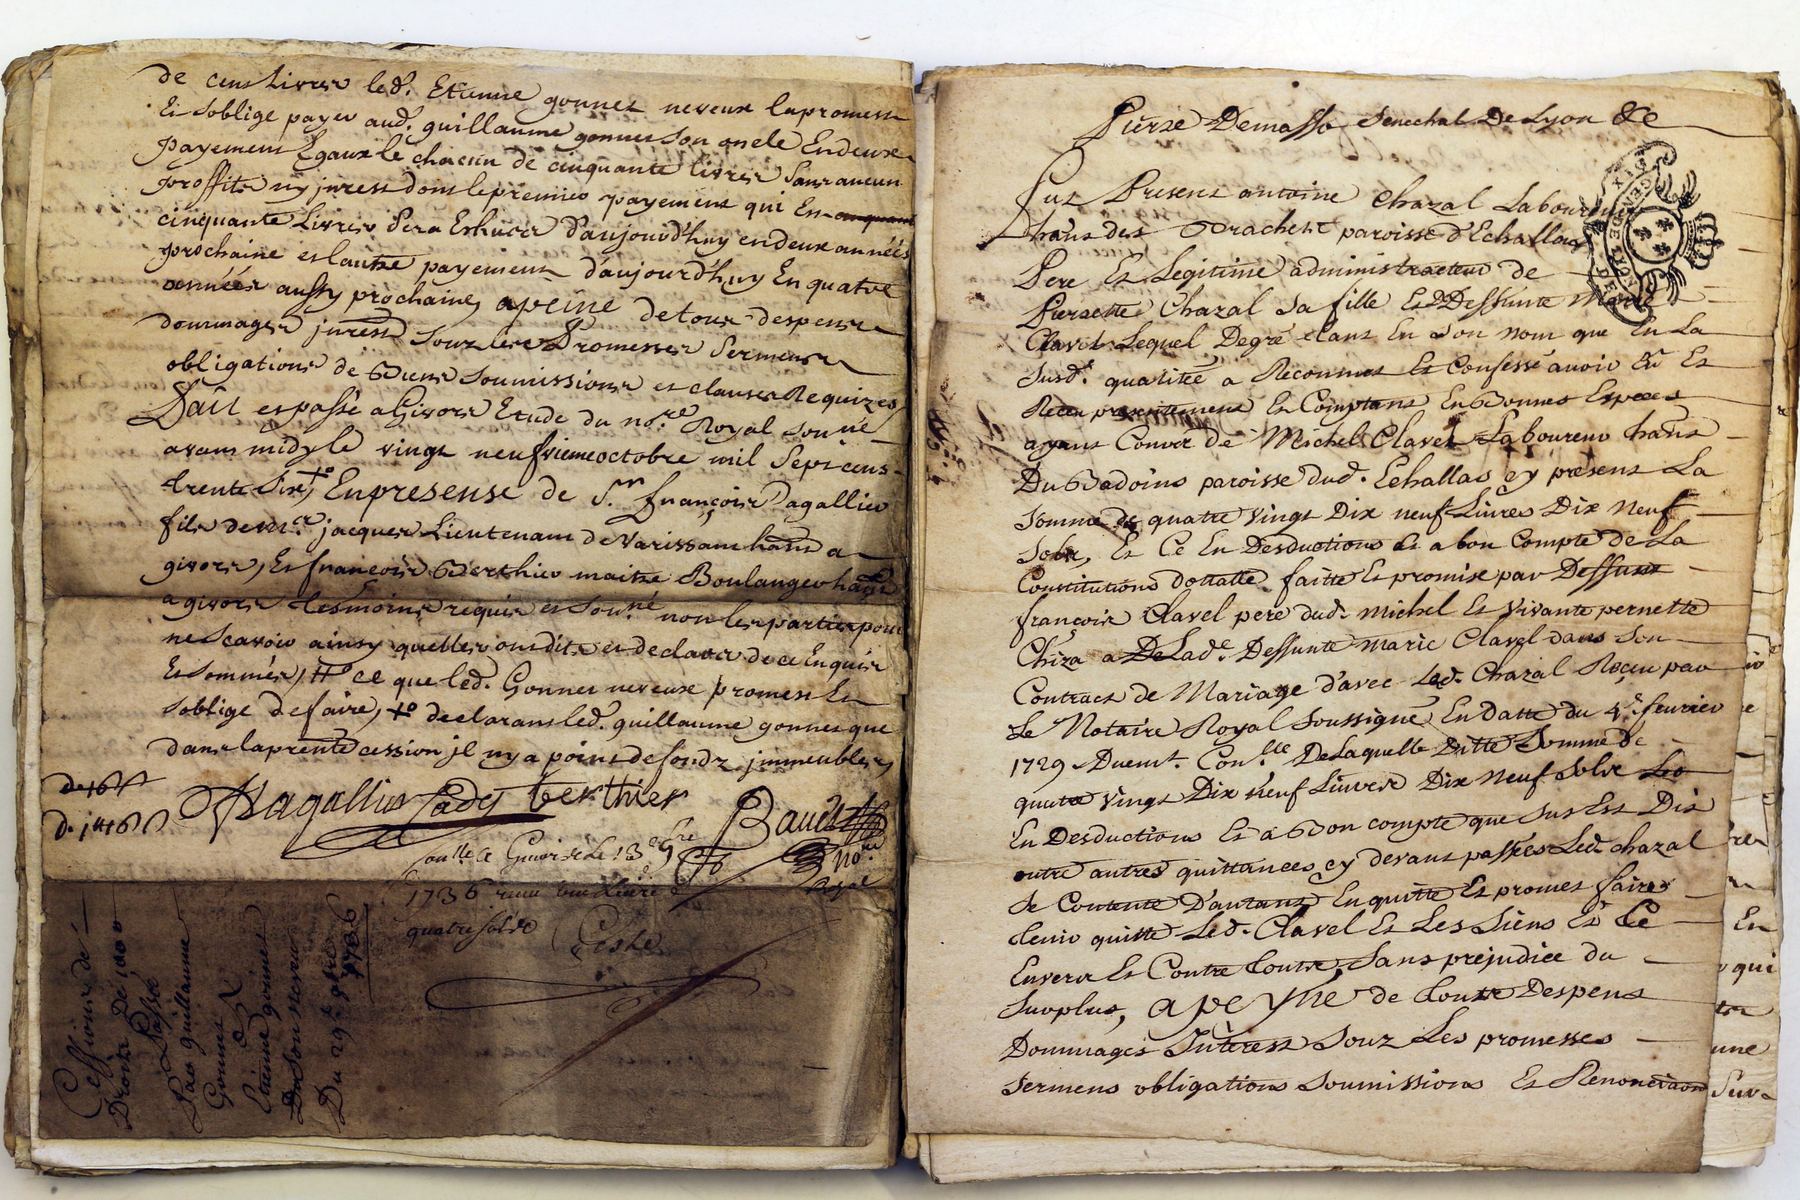 de cent Livres led. Etienne gonnet neveux lapromest
Et soblige payer aud. guillaume gonnet son oncle Endeux
payement Egaux le chacun de cinquante livres sans aucun
proffits ny jnrest dont lepremier payement qui Est
cinquante Livres sera Eshuoir d'aujourd'huy en deux années
prochaine et lautre payement d'aujourd'huy En quatre
années aussy prochaines apeine detous despens
dommages jnrest souz les Promesses serment
obligations de Biens soumissions et clauses Requizes
Fait et passé a Givors Etude du no.re Royal sou.né
avant midy le vingt neufvieme octobre mil sept cens
trente six, +o Enpresense de S.r françois Dagallier
fils de m.re jacques Lieutenant de Varissant ha.nt a
givors, Et françois Berthier maitre Boulanger ha.nt
a givors tesmoins requis et sou.né non les parties pour
ne Scavoir ainsy quelles ont dit et declaré de ce Enquis
Et sommés, #o ce que led. Gonnet neveux promest Et
soblige defaire, +o declarant led. guillaume gonnet que
dans la prente cession jl ny a point de fondz jmmeubles
Dagallier Berthier
Baud
No.re
Royal
Con.lle a Givors le 13e 9bre
1736 reçu
quatre sols
Coste
Cession de
Droits De 100 #
Passée
Par guillaume
Gonnet
a
Etienne gonnet
Son Neveux
Du 29e 8bre
1736
Pierre Demasso Senechal De Lyon &c
Fut Present antoine Chazal Laboureur
ha.nt des Brachest paroisse d'Echallas
Pere Et Legitime administrateur de
Pierrette Chazal sa fille Et De Deffunte Marie
Clavel Lequel Degré tant En son nom que En La
susd. qualitée a Reconnu Et Confessé avoir Eû Et
Receu presentement Et Comptant En Bonnes Especes
ayant Cours de Michel Clavel Laboureur ha.nt
Du Badoins paroisse dud. Echallas cy present La
somme de quatre vingt Dix neuf Livres Dix neuf
sols, Et Ce En Desduction Et a bon Compte de La
Constitution dottalle faitte Et promise par Deffunt
françois Clavel pere dud. Michel Et vivante pernette
Chiza a De Lad.e Deffunte Marie Clavel dans son
Contract de Mariage d'avec Led. Chazal Reçeu par
Le Notaire Royal soussigné, En datte du 4e fevrier
1729 Duem.t Con.lle De Laquelle ditte Somme de
quatre vingt Dix Neuf Livres Dix Neuf sols
En Desductions Et a Bon compte que sus Est Dit
outre autres quittances cy devant passées Led. chazal
se Contente D'autant En quitte Et promet faire
tenir quitte Led. Clavel Et Les siens Et Ce
Envers Et Contre toutz, sans prejudice du
surplus, a peyne de touts Despens
Dommages Interest souz Les promesses
serments obligations soumissions Et Renonciaon
GEN. DE LYON
En
qui
une
sur